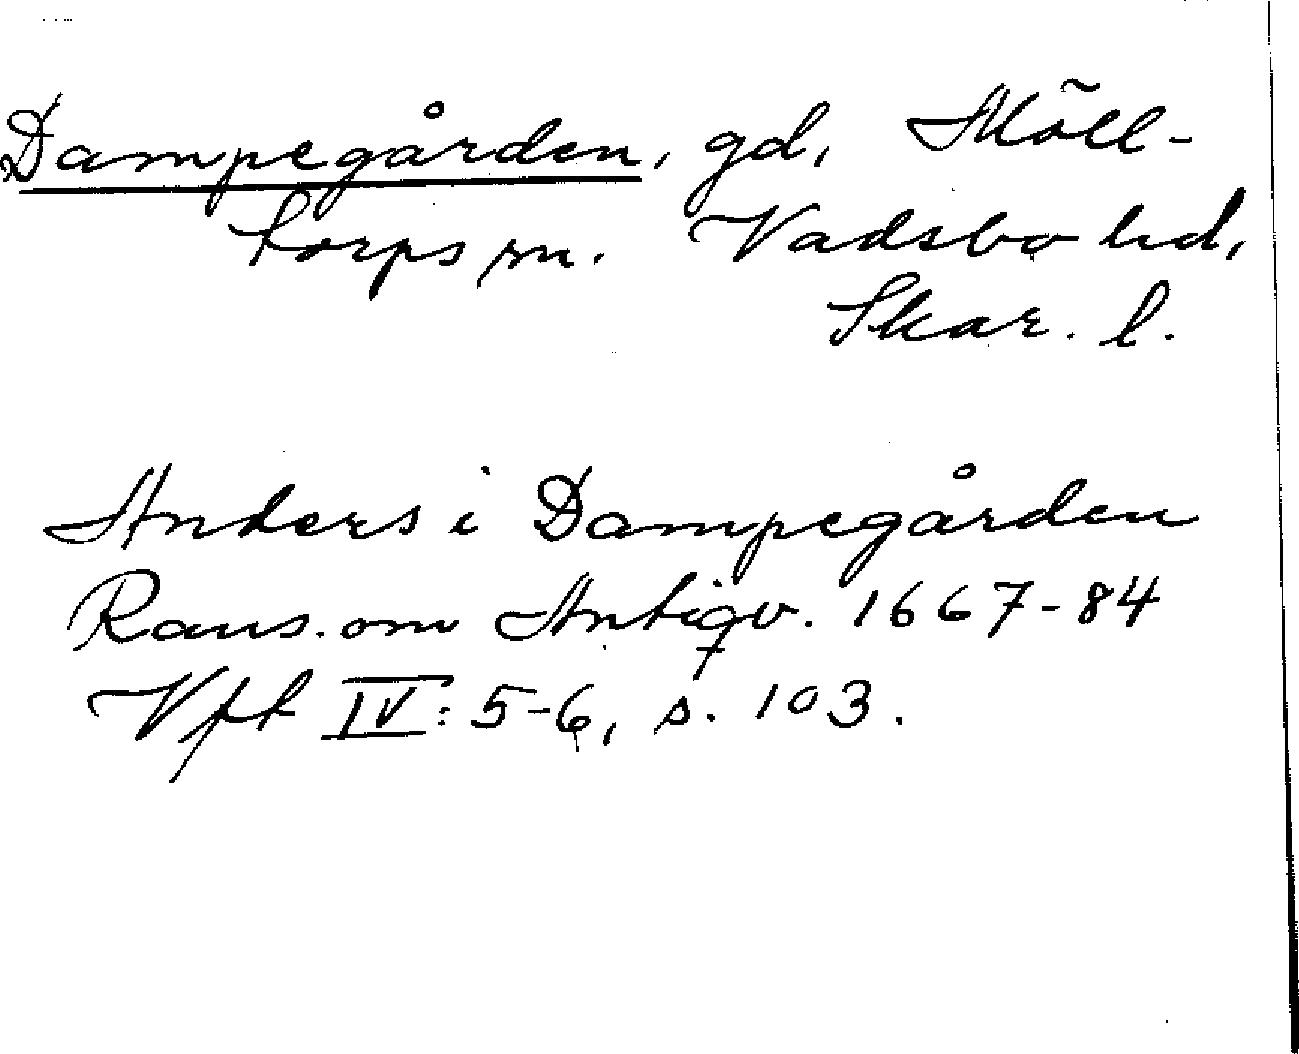 Dampegården, gd, Möll-
torps sn. Vadsbo hd,
Skar. l.
Anders i Dampegården
Rans. om Antiqv. 1667-84
Vft IV: 5-6, s. 103.